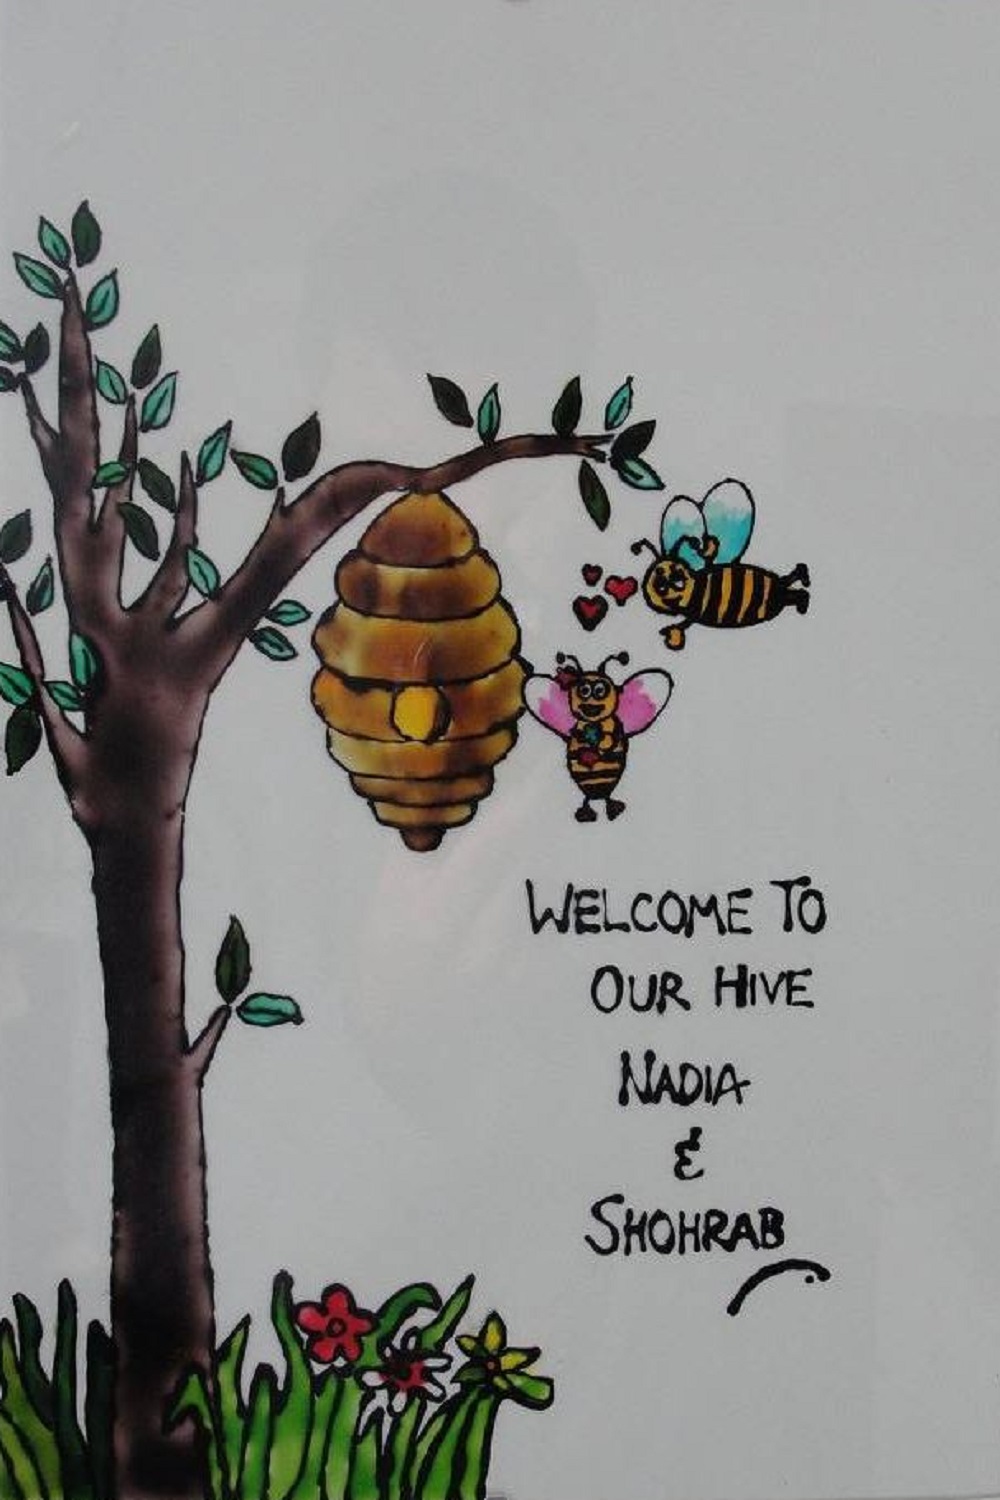 WELCOME TO
OUR HIVE
NADIA
&
SHOHRAB